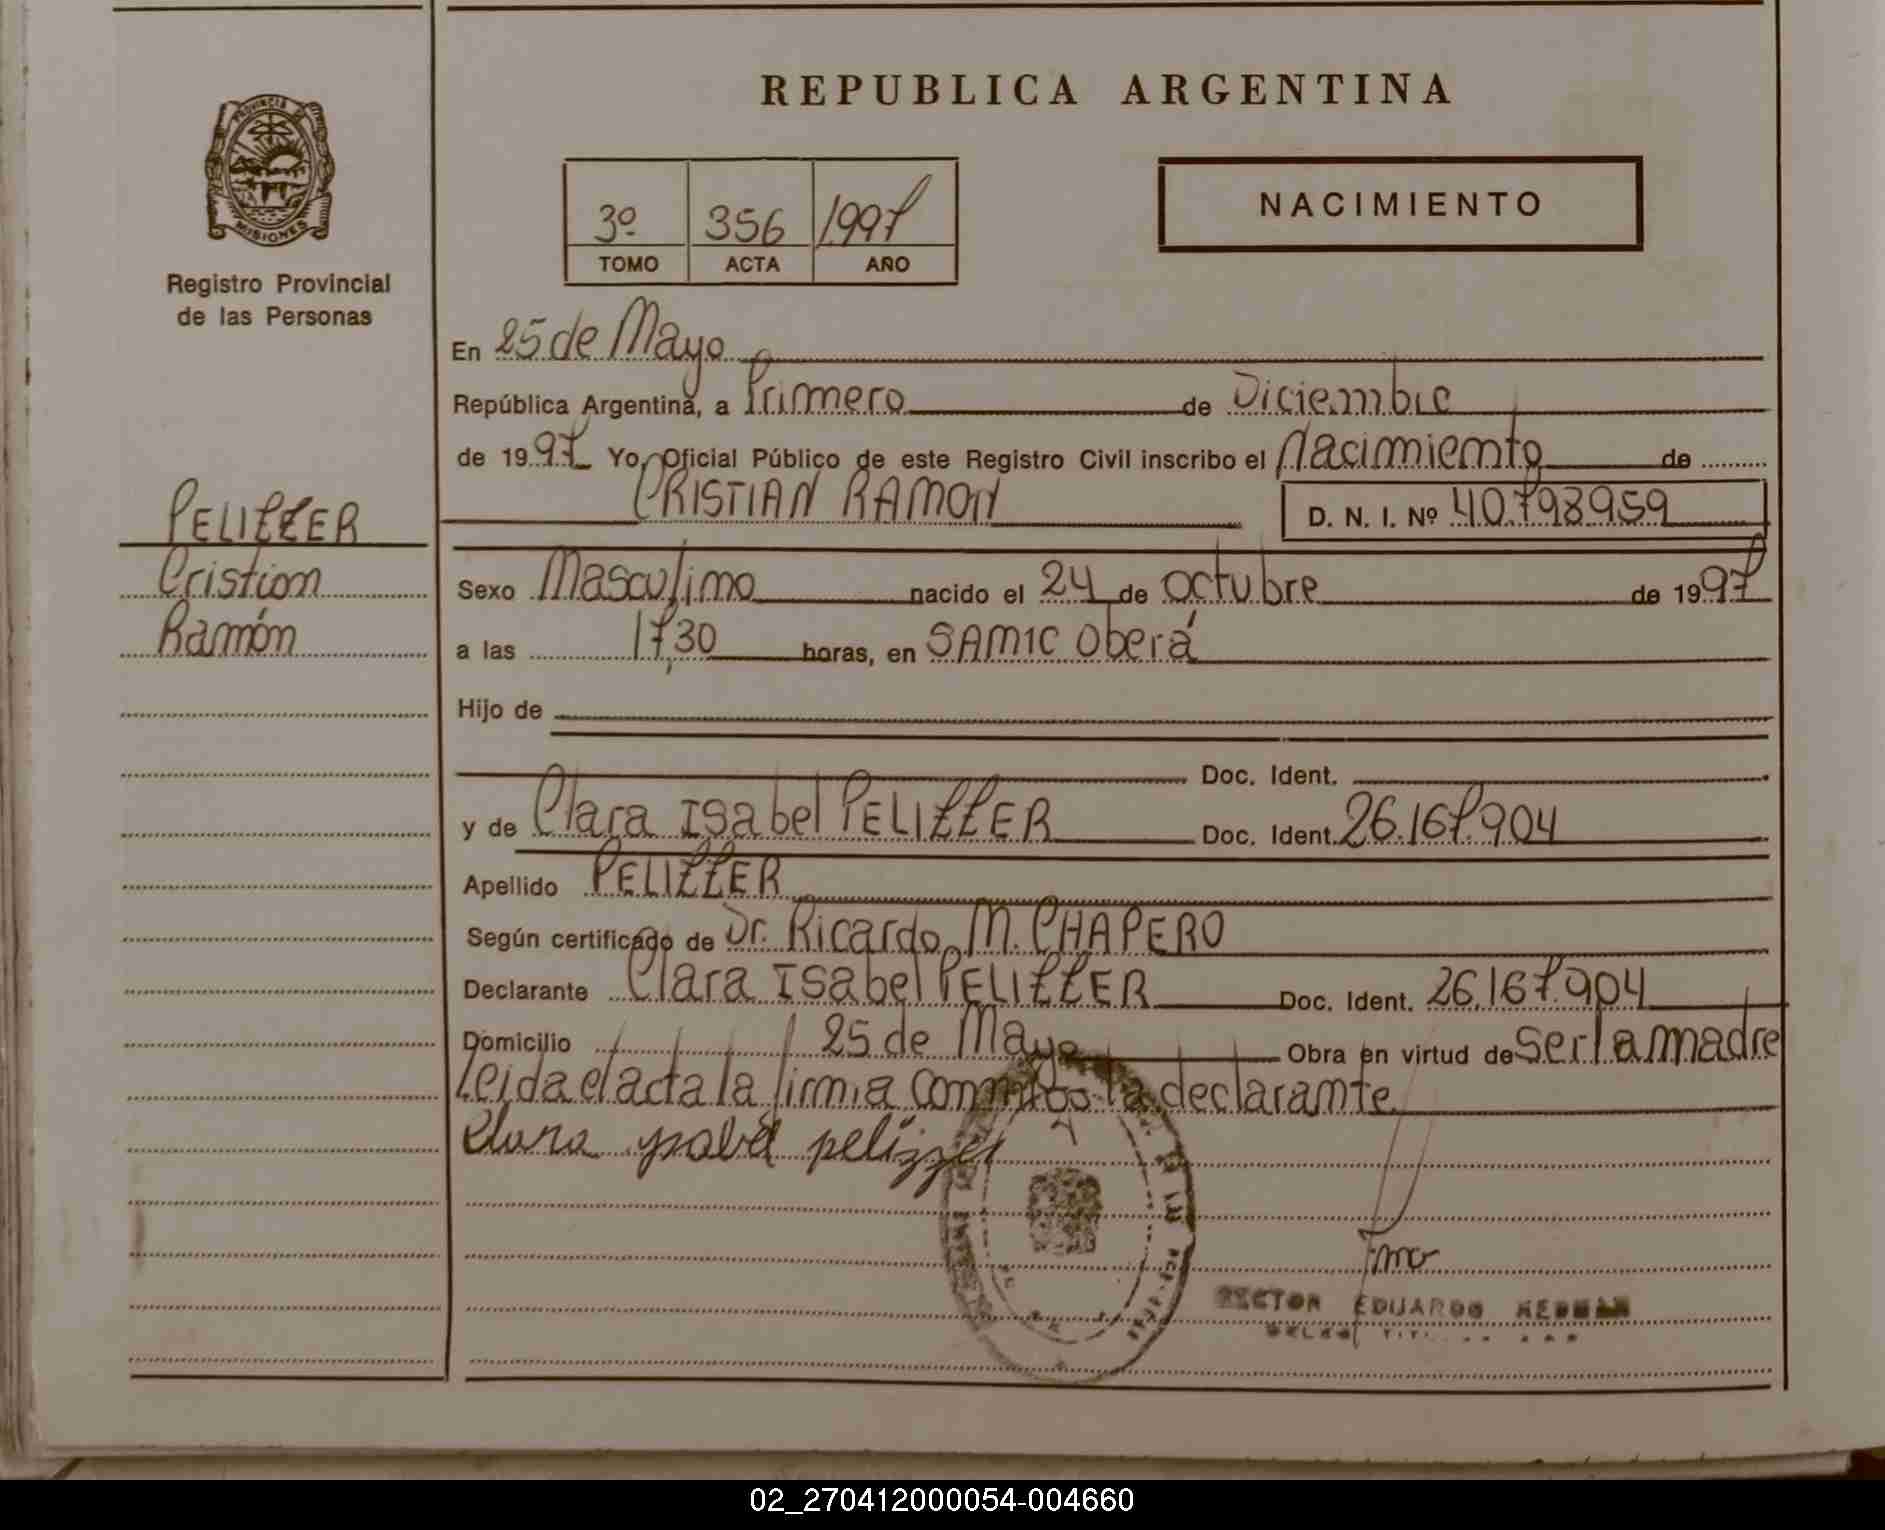 REPUBLICA ARGENTINA
PROVINCIA
MISIONES
Registro Provincial
de las Personas
3º 356 1997
TOMO ACTA AÑO
NACIMIENTO
En 25 de Mayo
República Argentina, a Primero de Diciembre
de 1997 Yo, Oficial Público de este Registro Civil inscribo el Nacimiento de
CRISTIAN RAMON D. N. I. Nº 40.798959
PELIZZER
Cristian
Ramón
Sexo Masculino nacido el 24 de octubre de 1997
a las 17,30 horas, en SAMIC Oberá
Hijo de
Doc. Ident.
y de Clara Isabel PELIZZER Doc. Ident. 26.167.904
Apellido PELIZZER
Según certificado de Dr. Ricardo M. CHAPERO
Declarante Clara Isabel PELIZZER Doc. Ident. 26.167.904
Domicilio 25 de Mayo Obra en virtud de ser la madre
Leida el acta la firma conmigo la declarante
Clara ysabel pelizzer
EDUARDO
02_270412000054-004660